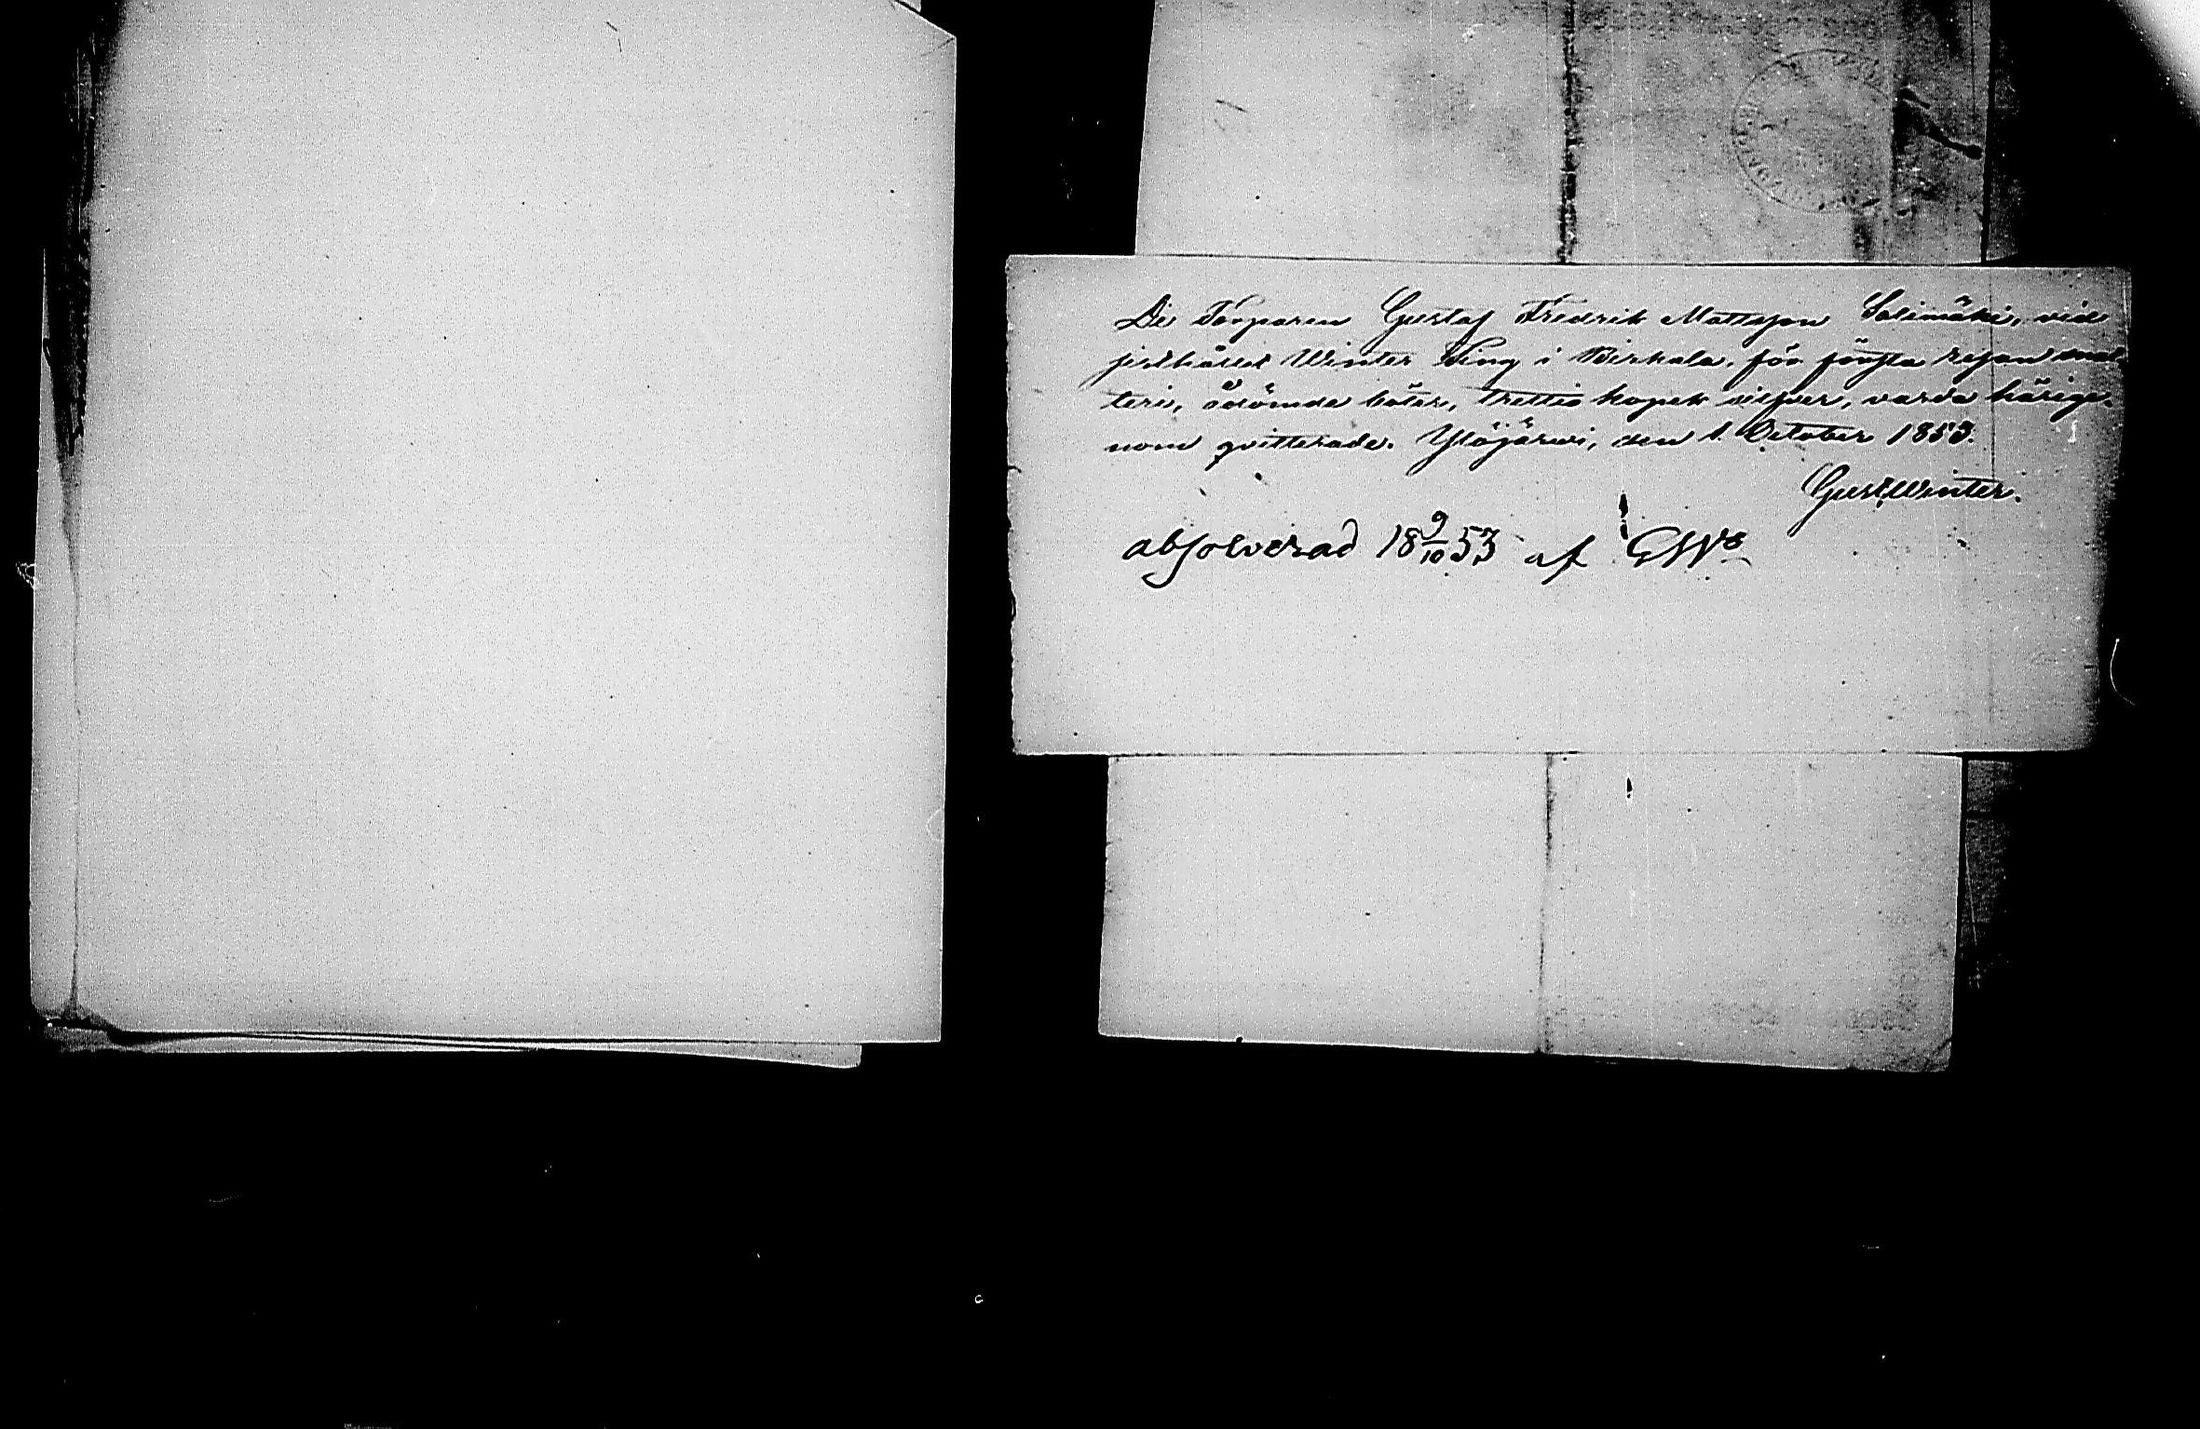 De Torparen Gustaf Fredrik Mattsson Solimäki, vid
sidhållet Winter Ting i Birkala, för första resan
teri, ådömde böter, trettio kopek silfver, varda härige-
nom qvitterade. Ylöjärvi, den 1. October 1853.
Gust. Winter.
absolverad 18 9/10 53 af GWr